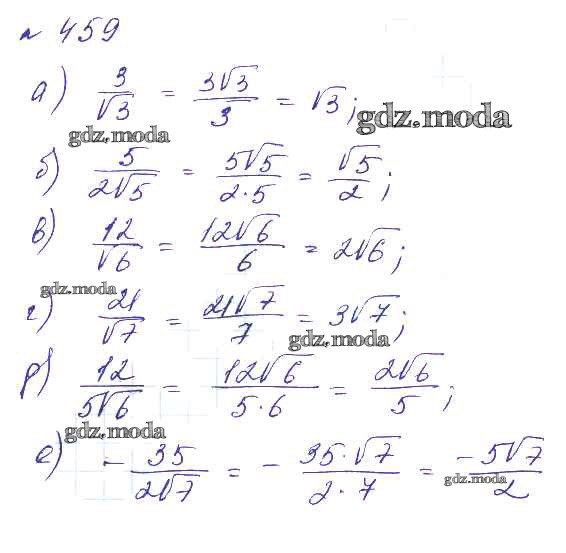 № 459
а) 3/√3 = 3√3/3 = √3;
gdz.moda
gdz.moda
б) 5/2√5 = 5√5/2·5 = √5/2;
в) 12/√6 = 12√6/6 = 2√6;
gdz.moda
г) 21/√7 = 21√7/7 = 3√7;
gdz.moda
д) 12/5√6 = 12√6/5·6 = 2√6/5;
gdz.moda
е) - 35/2√7 = - 35·√7/2·7 = -5√7/2
gdz.moda